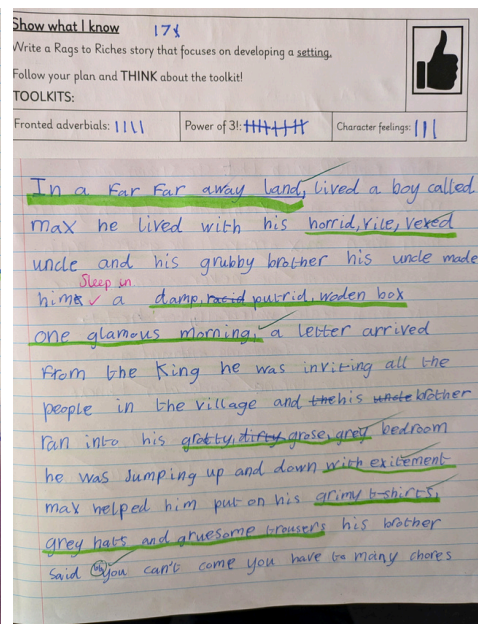 Show what I know 17
Write a Rags to Riches story that focuses on developing a setting.
Follow your plan and THINK about the toolkit!
TOOLKITS:
Fronted adverbials: Power of 3!: Character feelings:
In a Far Far away land, lived a boy called
max he lived with his horrid, vile, vexed
uncle and his grubby brother his uncle made
Sleep in
him a damp, racid putrid, woden box
one glamous morning, a letter arrived
From the King he was inviting all the
people in the village and the his uncle brother
ran into his grotty, dirty grose, grey bedroom
he was Jumping up and down with exitement
max helped him put on his grimy t-shirts,
grey hats and gruesome trousers his brother
Said you can't come you have to many chores